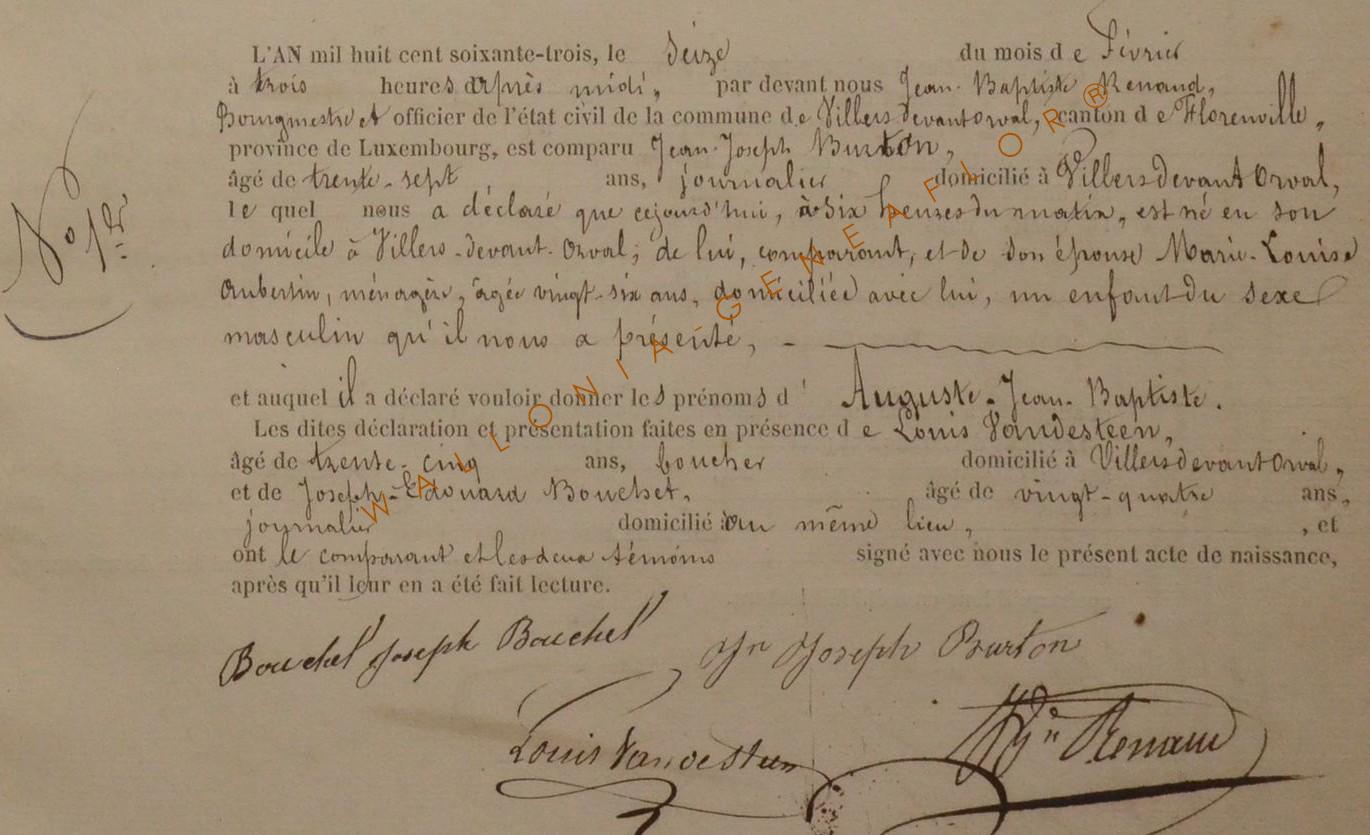 L'AN mil huit cent soixante-trois, le Seize du mois de Février
à trois heures après midi, par devant nous Jean-Baptiste Renaud,
Bourgmestre et officier de l'état civil de la commune de Villers devant orval, canton de Florenville,
province de Luxembourg, est comparu Jean-Joseph Burton,
âgé de trente-sept ans, journalier domicilié à Villers devant Orval,
lequel nous a déclaré que cejourd'hui, à six heures du matin, est né en son
domicile à Villers-devant-Orval; de lui, comparant, et de son épouse Marie-Louise
Aubertin, ménagère, âgée vingt-six ans, domiciliée avec lui, un enfant du sexe
No 1er
masculin qu'il nous a présenté,
et auquel il a déclaré vouloir donner les prénoms d'Auguste-Jean-Baptiste.
Les dites déclaration et présentation faites en présence de Louis Vandesteen,
âgé de trente-cinq ans, boucher domicilié à Villers devant Orval,
et de Joseph-Edouard Bouchet, âgé de vingt-quatre ans,
journalier domicilié au même lieu, , et
ont le comparant et les deux témoins signé avec nous le présent acte de naissance,
après qu'il leur en a été fait lecture.
Bouchet Joseph Bouchet Jn Joseph Burton
Louis Vandesteen Jn Bte Renaud
WALLONIA-GENEAFLOR®